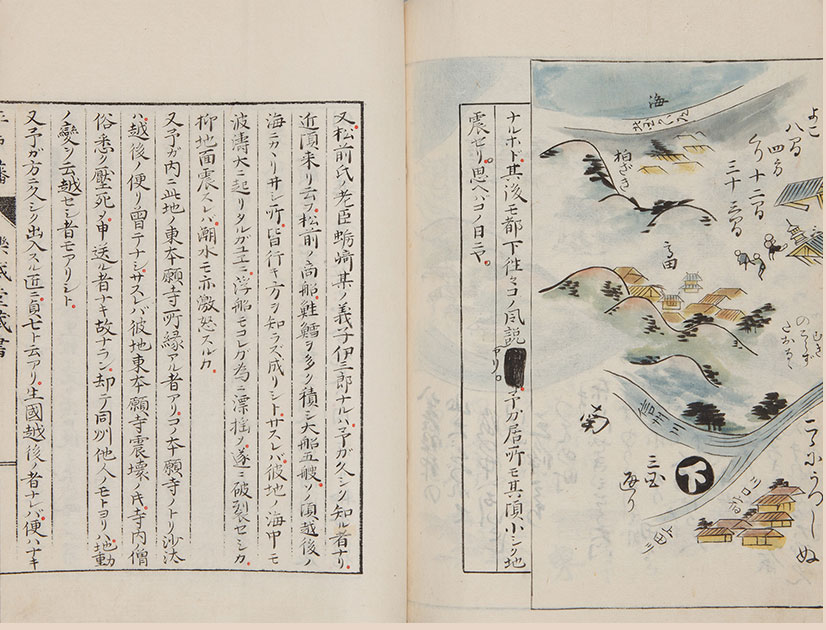 こゝにうつしぬ
よこ
八百
四方
三十
海
柏ざき
高田
信州川
三国
通り
下
ナルホド其後モ都下往々コノ風説アリ。予ガ居所モ其頃小シク地
震セリ。思ヘバコノ日ニヤ。
又松前氏ノ老臣蛎崎某ノ義子伊三郎ナルハ予ガ久シク知ル者ナリ。
近頃来リ云フ松前ノ商船鮭鱈ヲ多ク積シ大船五艘ソノ頃越後ノ
海ニカヽリ井シ所皆行キ方ヲ知ラズ成リシト。サスレバ彼地ノ海中モ
波濤大ニ起リタルガユエニ浮船モコレガ為ニ漂揺〆遂ニ破裂セシカ。
抑地面震スレバ潮水モ亦激怒スルカ
又予ガ内ニ此地東本願寺ニ所縁アル者アリコノ本願寺ノトリ沙汰
ハ越後ノ便リ曽テナシ。サスレバ彼地東本願寺震壊ノトキ寺内僧
俗悉ク壓死〆申送ル者ナキ故ナラン。却テ同州他人ノモトヨリハ地動
ノ變ヲ云越セシ者モアリシト。
又予ガ方ニ久シク出入スル近ニ貞七ト云アリ。生國越後ノ者ナレバ便ハナキ
平戸藩 樂歳堂蔵書